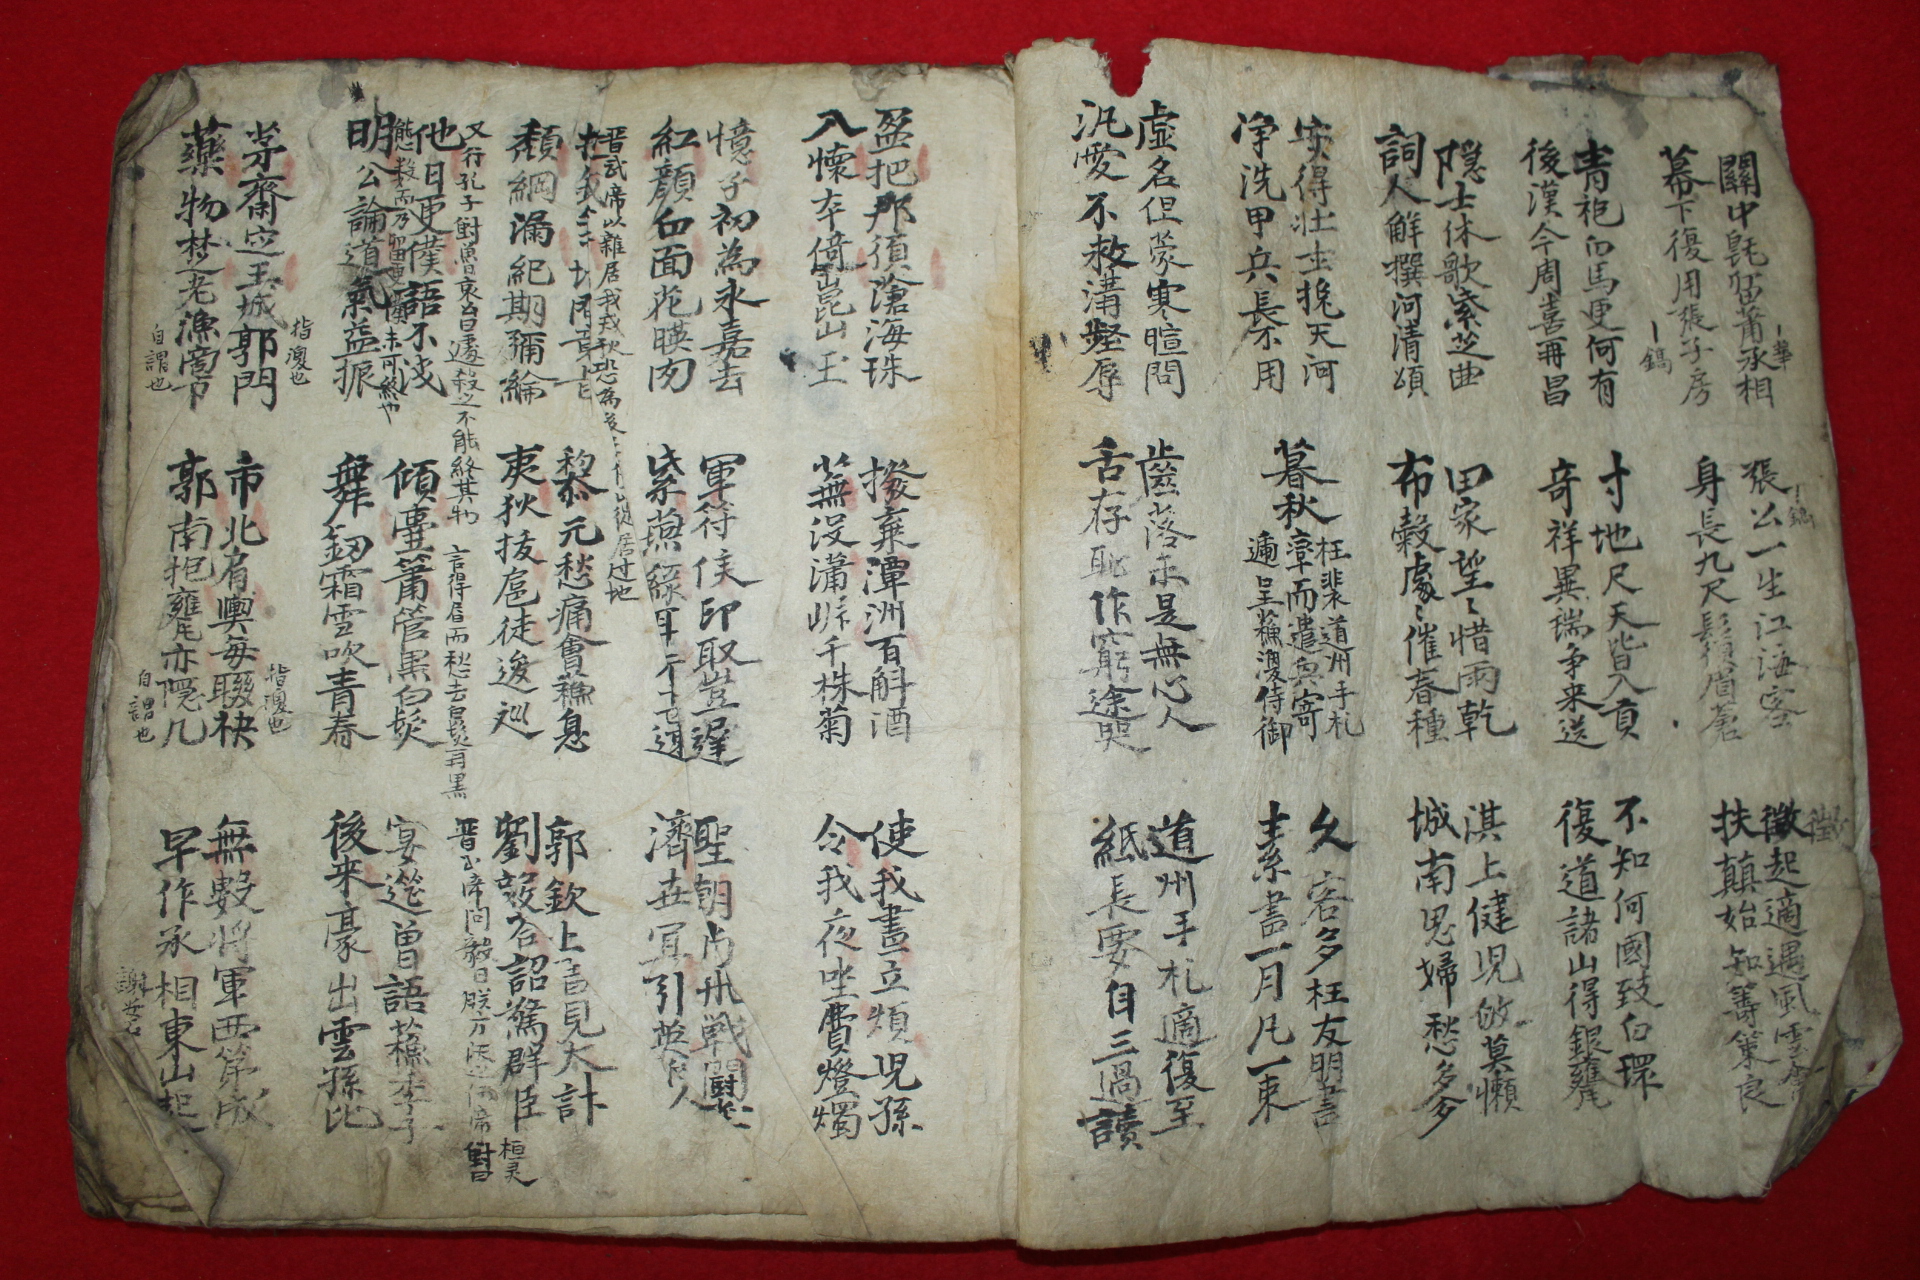 關中既留蕭丞相
華
幕下復用張子房
鎬
張公一生江海客
鎬
身長九尺鬚眉蒼
徵起適遇風雲會
徵
扶顛始知籌策良
青袍白馬更何有
後漢今周喜再昌
寸地尺天皆入貢
奇祥異瑞争来送
不知何國致白環
復道諸山得銀甕
隱士休歌紫芝曲
詞人解撰河清頌
田家望〻惜雨乾
布穀處〻催春種
淇上健児敀莫懶
城南思婦愁多夢
安得壮士挽天河
净洗甲兵長不用
暮秋
枉裴道州手札
率而遣興寄
遞呈蘇渙侍御
久客多枉友朋書
素書一月凡一束
虛名但蒙寒暄問
汎愛不救溝壑辱
齒落未是無心人
舌存恥作窮途哭
道州手札適復至
紙長要自三過讀
盈把那須滄海珠
入懷本倚崑山玉
撥棄潭洲百斛酒
蕪没瀟岸千株菊
使我晝立煩児孫
令我夜坐費燈燭
憶子初為永嘉去
紅顔白面花暎肉
軍符侯印取豈遲
紫燕綠耳行甚速
聖朝尚飛戰鬪塵
濟世宜引英俊人
黎元愁痛會蘇息
夷狄拔扈徒逡巡
頹綱漏紀期彌綸
郭欽上書見大計
晋武帝以雜居我戎狄恐為
劉毅答詔驚群臣
晋武帝問毅曰朕方
桓灵
對曰
他日更僕語不浅
又行孔子對魯哀公曰遽数之不能終其物
態数而乃留更僕未可終也
明公論道氣益振
傾壺簫管黑白髮
言得眉而愁去白髮再黑
舞釼霜雪吹青春
宴筵曾語蘇季子
後来豪出雲孫比
茅齋定王城郭門
指渙也
藥物楚老漁商市
自謂也
市北肩輿每聯袂
指渙也
郭南抱甕亦隱几
自謂也
無數將軍西第成
早作丞相東山起
謝安石